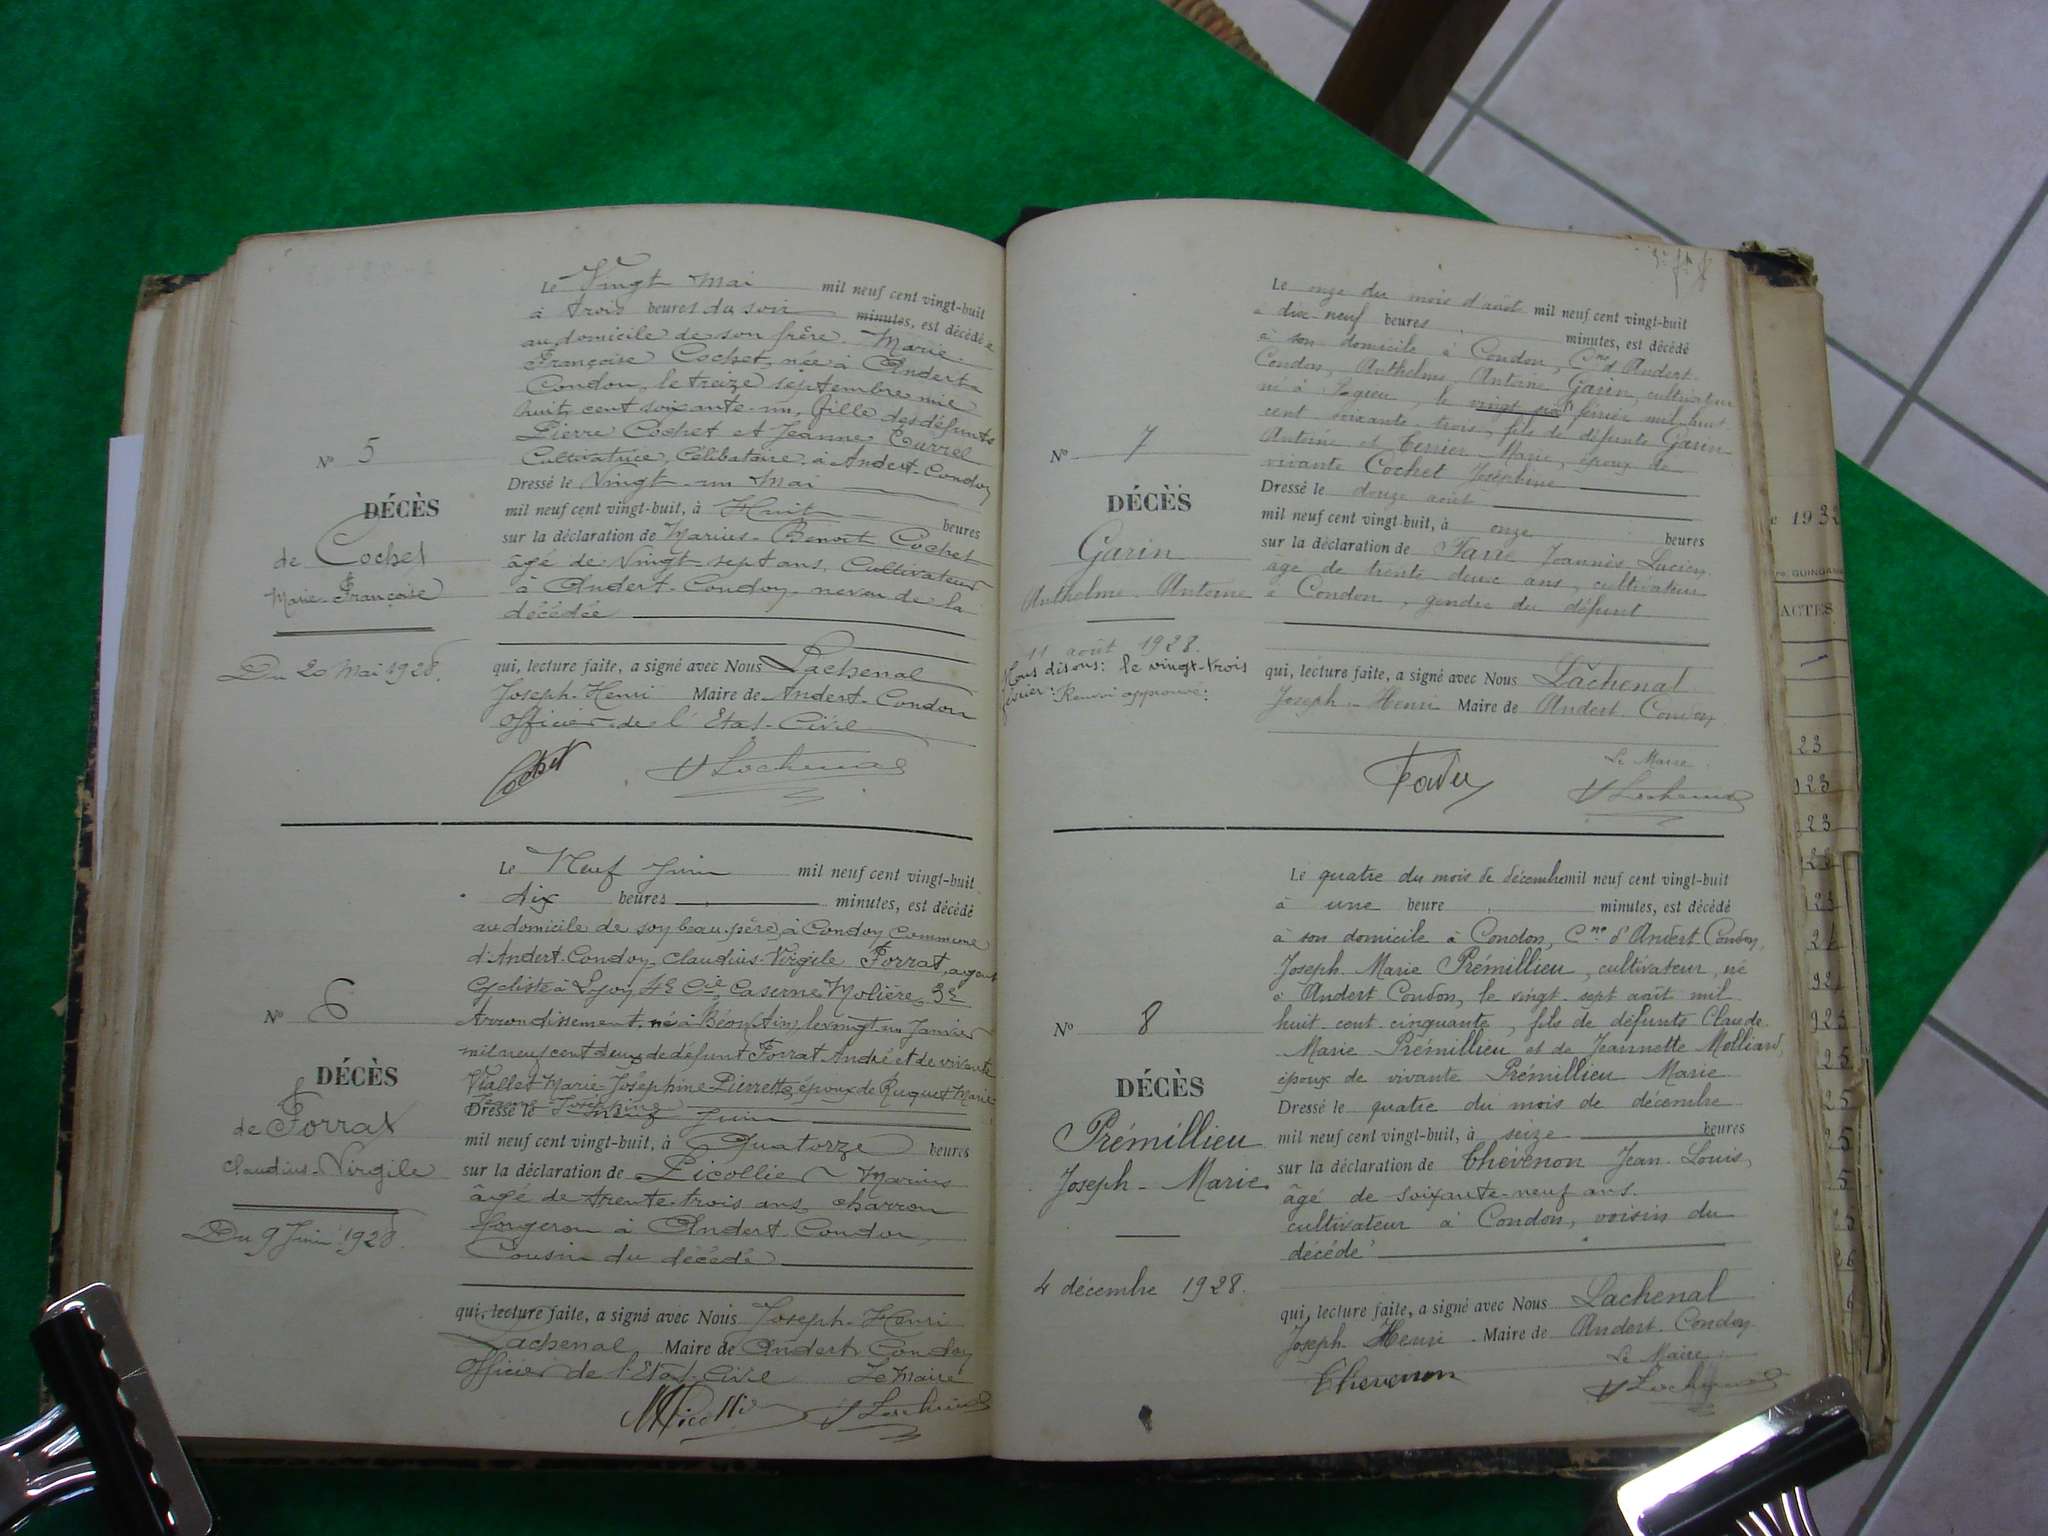 Le Vingt Mai mil neuf cent vingt-huit
à trois heures du soir minutes, est décédée
au domicile de son frère. Marie
Françoise Cochet, née à Andert
Condon, le treize septembre mil
huit cent soixante-un, fille des défunts
Pierre Cochet et Jeanne Currel
Cultivatrice, Célibataire, à Andert-Condon
N° 5
Dressé le Vingt-un Mai
DÉCÈS
mil neuf cent vingt-huit, à Huit heures
de Cochet
sur la déclaration de Marius-Benoit Cochet
Marie-Françoise
âgé de Vingt sept ans, Cultivateur
à Andert-Condon, neveu de la
décédée
Du 20 Mai 1928.
qui, lecture faite, a signé avec Nous Lachenal
Joseph-Henri Maire de Andert-Condon
Officier de l'Etat-Civil
Cochet
Le Neuf Juin mil neuf cent vingt-huit
dix heures minutes, est décédé
au domicile de son beau-père, à Condon Commune
d'Andert-Condon, Claudius-Virgile Forrat, agent
Cycliste à Lyon 4e Cie, Caserne Molière, 3e
Arrondissement, né à Béon (Ain) le vingt un Janvier
mil neuf cent deux de défunt Forrat André et de vivante
Viallet Marie-Joséphine-Pierrette, époux de Ruquet Marie
Jeanne-Joséphine
N° 6
Dressé le neuf Juin
DÉCÈS
mil neuf cent vingt-huit, à Quatorze heures
de Forrat
sur la déclaration de Picollier Marius
Claudius-Virgile
âgé de trente-trois ans, charron
forgeron à Andert-Condon,
Cousin du décédé
Du 9 Juin 1928.
qui, lecture faite, a signé avec Nous Joseph-Henri
Lachenal Maire de Andert-Condon
Officier de l'Etat-Civil Le Maire
Le onze du mois d'août mil neuf cent vingt-huit
à dix neuf heures minutes, est décédé
à son domicile à Condon, Cne d'Andert
Condon, Anthelme Antoine Garin, cultivateur
né à le vingt six février mil huit
cent soixante trois, fils de défunts Garin
Antoine et Terrier Marie, époux de
vivante Cochet Joséphine
N° 7
Dressé le douze août
DÉCÈS
mil neuf cent vingt-huit, à onze heures
Garin
Anthelme-Antoine
sur la déclaration de Jeannès Lucien
âgé de trente deux ans, cultivateur
à Condon, gendre du défunt
11 août 1928.
Nous disons: le vingt-trois
février: Renvoi approuvé:
qui, lecture faite, a signé avec Nous Lachenal
Joseph-Henri Maire de Andert-Condon
Le Maire
Le quatre du mois de décembre mil neuf cent vingt-huit
à une heure minutes, est décédé
à son domicile à Condon, Cne d'Andert-Condon,
Joseph-Marie Prémillieu, cultivateur, né
à Andert Condon, le vingt-sept août mil
huit-cent-cinquante, fils de défunts Claude
Marie Prémillieu et de Jeannette Molliard,
époux de vivante Prémillieu Marie
N° 8
Dressé le quatre du mois de décembre
DÉCÈS
mil neuf cent vingt-huit, à seize heures
Prémillieu
Joseph-Marie
sur la déclaration de Thévenon Jean-Louis,
âgé de soixante-neuf ans,
cultivateur à Condon, voisin du
décédé
4 décembre 1928.
qui, lecture faite, a signé avec Nous Lachenal
Joseph-Henri Maire de Andert-Condon
Le Maire
Thévenon
1932
ACTES
23
923
23